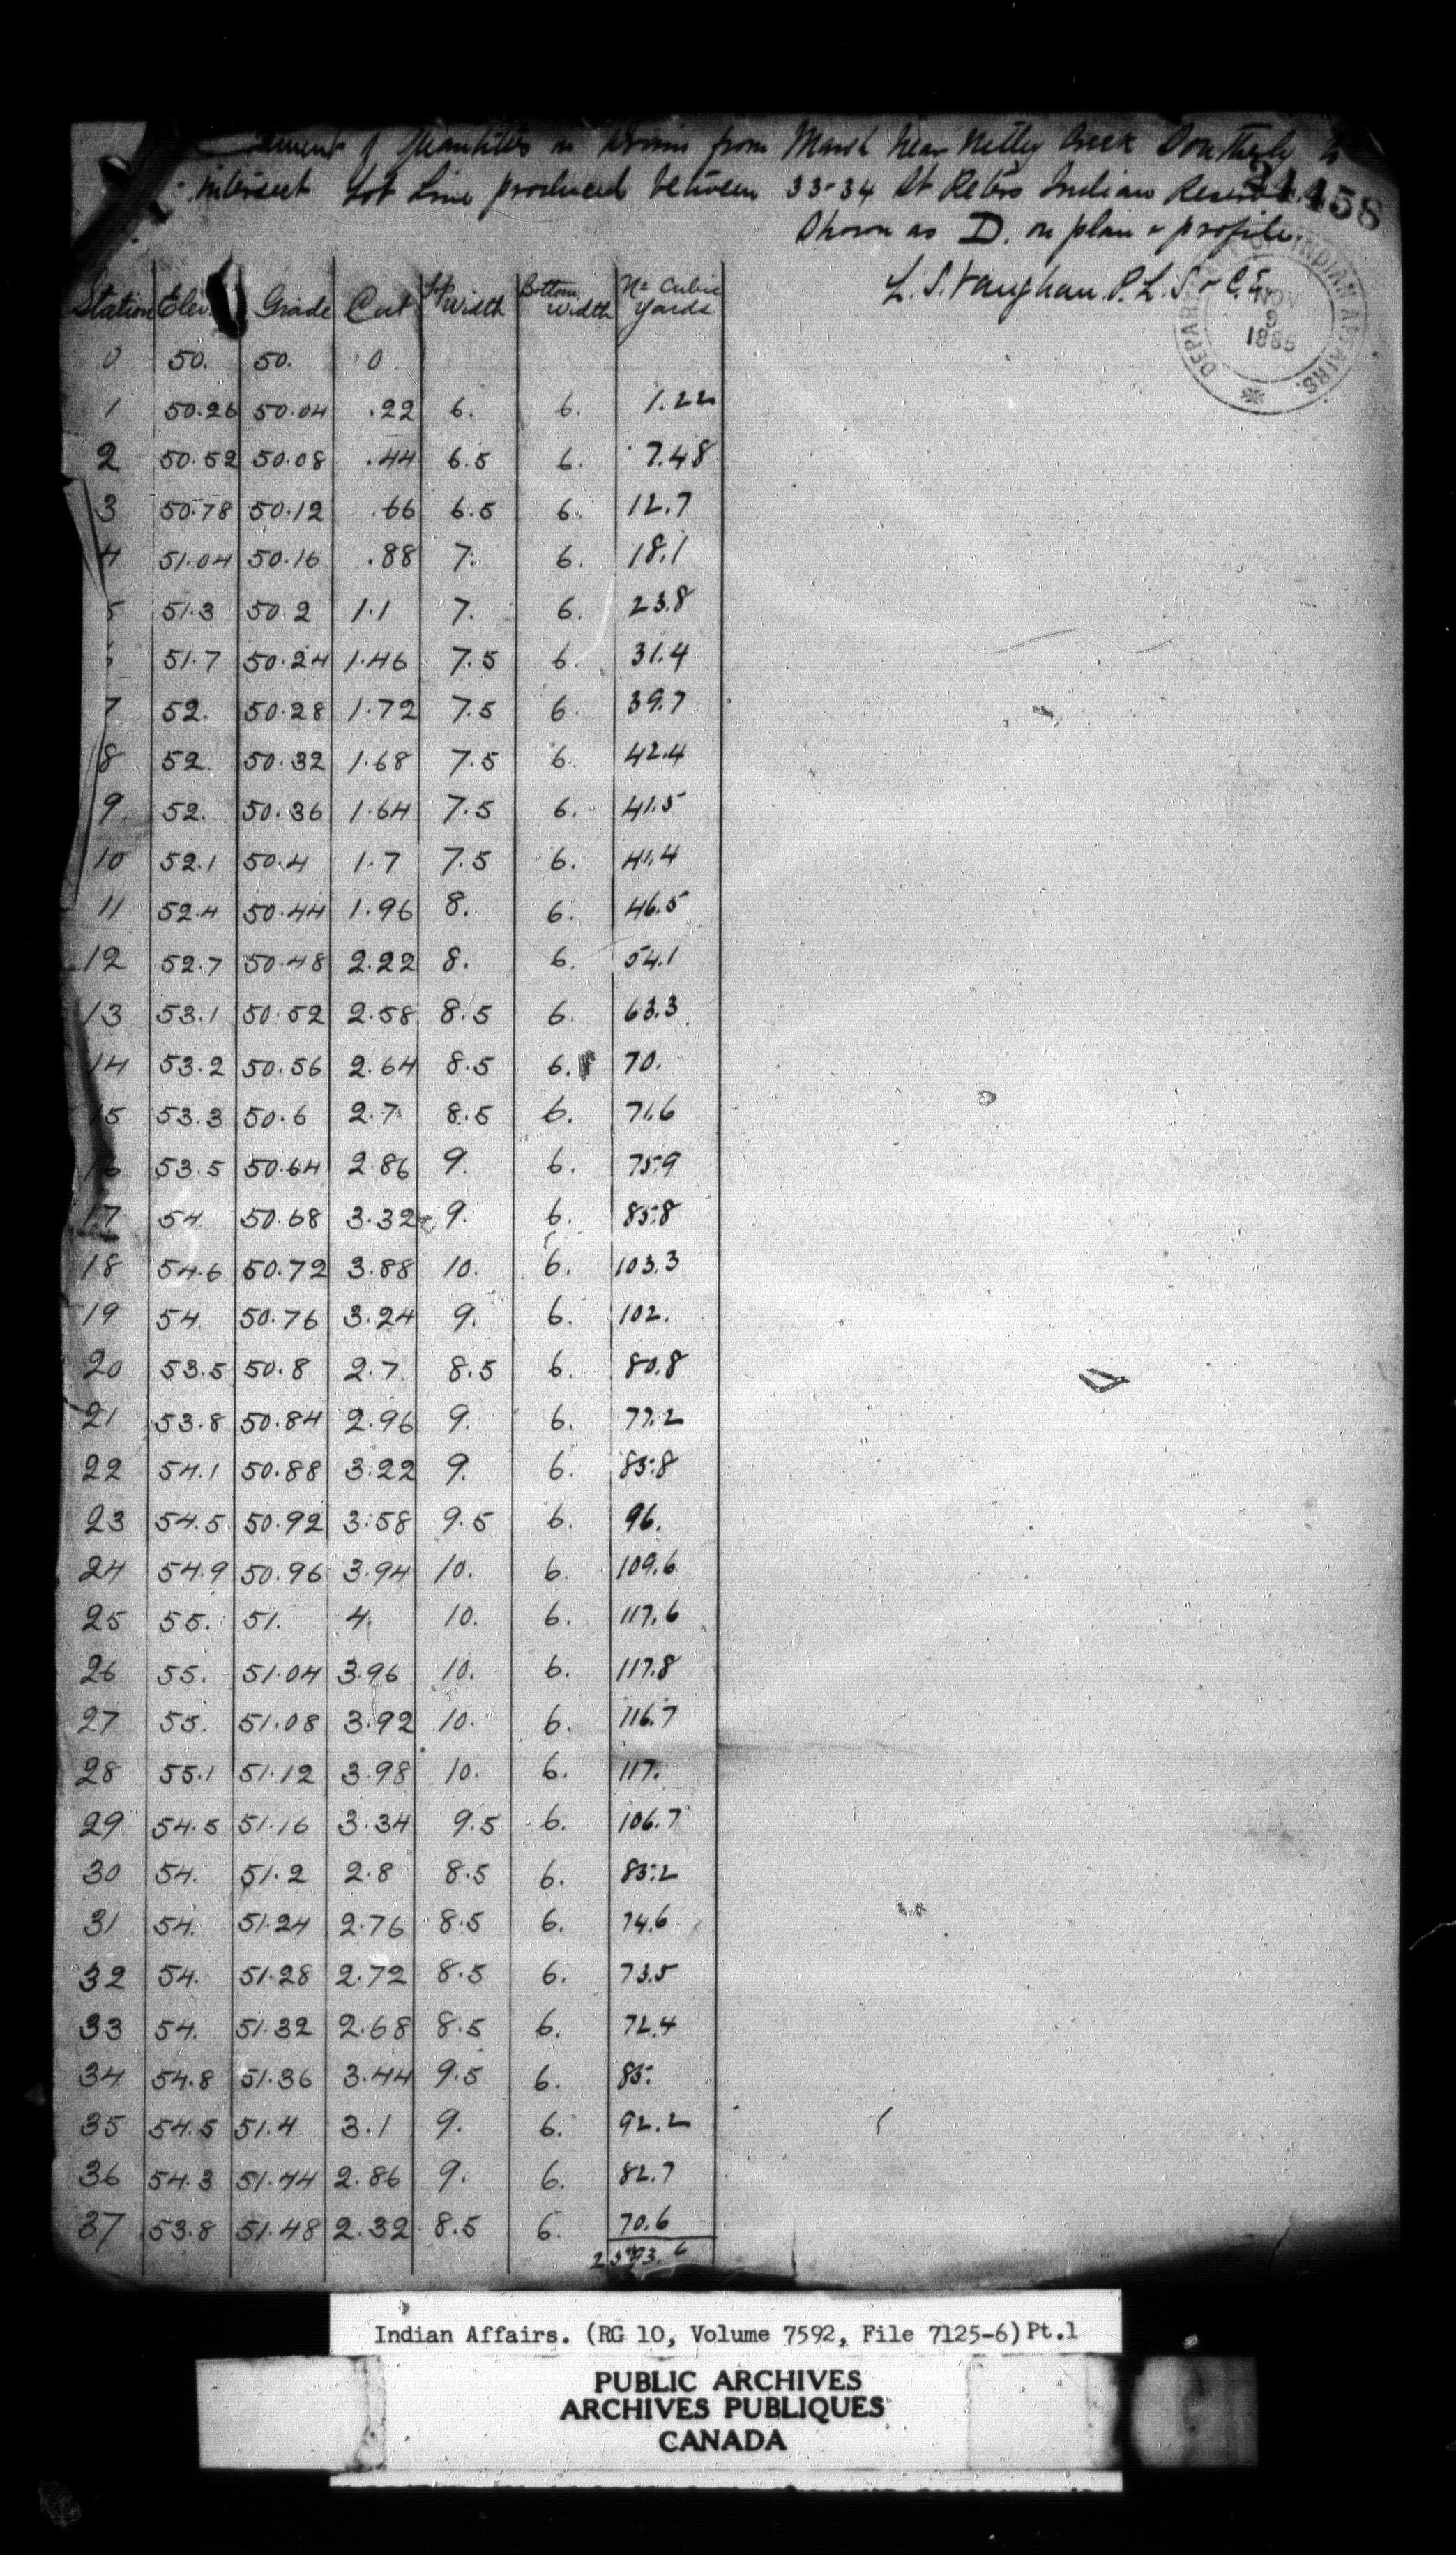 of Quantities in Drain from Marsh near Netley Creek Southerly to
intersect Lot Line produced between 33-34 St Peters Indian Reserve
Shown as D. on plan & profile
L. S. Vaughan P. L. S. & C. E.
458
DEPARTMENT OF INDIAN AFFAIRS.
NOV
9
188
Station Elev. Grade Cut Width Bottom Width No Cubic Yards
0 50. 50. 0
1 50.26 50.04 .22 6. 6. 1.22
2 50.52 50.08 .44 6.5 6. 7.48
3 50.78 50.12 .66 6.5 6. 12.7
4 51.04 50.16 .88 7. 6. 18.1
5 51.3 50.2 1.1 7. 6. 23.8
51.7 50.24 1.46 7.5 6. 31.4
7 52. 50.28 1.72 7.5 6. 39.7
8 52. 50.32 1.68 7.5 6. 42.4
9 52. 50.36 1.64 7.5 6. 41.5
10 52.1 50.4 1.7 7.5 6. 41.4
11 52.4 50.44 1.96 8. 6. 46.5
12 52.7 50.48 2.22 8. 6. 54.1
13 53.1 50.52 2.58 8.5 6. 63.3
14 53.2 50.56 2.64 8.5 6. 70.
15 53.3 50.6 2.7 8.5 6. 71.6
16 53.5 50.64 2.86 9. 6. 75.9
17 54 50.68 3.32 9. 6. 85.8
18 54.6 50.72 3.88 10. 6. 103.3
19 54. 50.76 3.24 9. 6. 102.
20 53.5 50.8 2.7 8.5 6. 80.8
21 53.8 50.84 2.96 9. 6. 77.2
22 54.1 50.88 3.22 9. 6. 85.8
23 54.5 50.92 3.58 9.5 6. 96.
24 54.9 50.96 3.94 10. 6. 109.6
25 55. 51. 4. 10. 6. 117.6
26 55. 51.04 3.96 10. 6. 117.8
27 55. 51.08 3.92 10. 6. 116.7
28 55.1 51.12 3.98 10. 6. 117.
29 54.5 51.16 3.34 9.5 6. 106.7
30 54. 51.2 2.8 8.5 6. 85.2
31 54. 51.24 2.76 8.5 6. 74.6
32 54. 51.28 2.72 8.5 6. 73.5
33 54. 51.32 2.68 8.5 6. 72.4
34 54.8 51.36 3.44 9.5 6. 85.
35 54.5 51.4 3.1 9. 6. 92.2
36 54.3 51.44 2.86 9. 6. 82.7
37 53.8 51.48 2.32 8.5 6. 70.6
Indian Affairs. (RG 10, Volume 7592, File 7125-6) Pt.1
PUBLIC ARCHIVES
ARCHIVES PUBLIQUES
CANADA